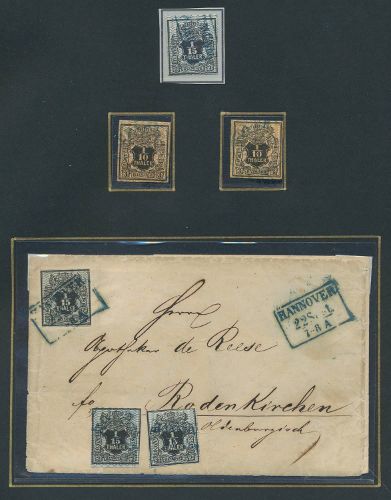 1
15
THALER
1
10
THALER
1
10
THALER
1
15
THALER
HANNOVER
7-8 A
Herrn
Apotheker de Reese
Rodenkirchen
Oldenburgisch
1
15
1
15